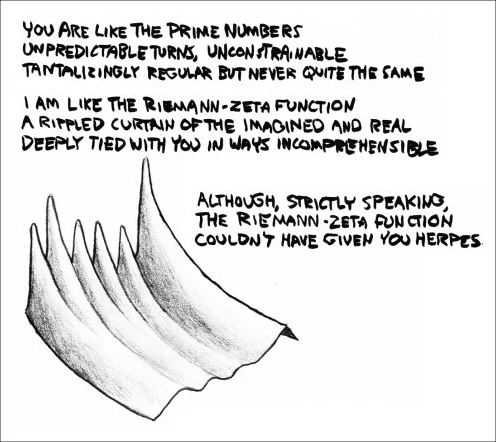 YOU ARE LIKE THE PRIME NUMBERS
UNPREDICTABLE TURNS, UNCONSTRAINABLE
TANTALIZINGLY REGULAR BUT NEVER QUITE THE SAME
I AM LIKE THE RIEMANN-ZETA FUNCTION
A RIPPLED CURTAIN OF THE IMAGINED AND REAL
DEEPLY TIED WITH YOU IN WAYS INCOMPREHENSIBLE
ALTHOUGH, STRICTLY SPEAKING,
THE RIEMANN-ZETA FUNCTION
COULDN'T HAVE GIVEN YOU HERPES.